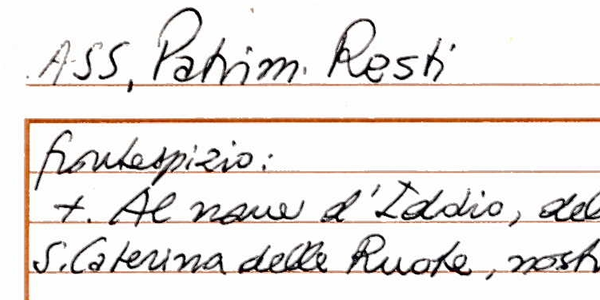 ASS, Patrim. Resti
frontespizio:
+. Al nome d'Iddio, del
S. Caterina delle Ruote, nost